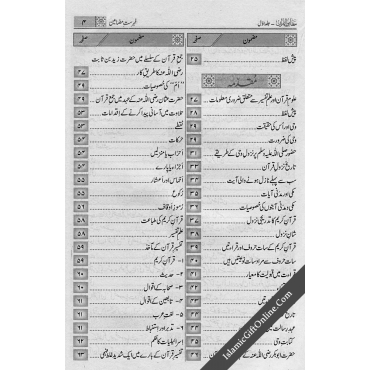 فہرست مضامین
۳
مضمون
صفحہ
پیش لفظ
۲۵
مقدمہ
علوم قرآن اور علم تفسیر سے متعلق ضروری معلومات
۲۷
پیش لفظ
۲۷
وحی اور اس کی حقیقت
۲۹
وحی کی ضرورت
۲۹
حضور صلی اللہ علیہ وسلم پر نزول وحی کے طریقے
۳۱
تاریخ نزول قرآن
سب سے پہلے نازل ہونے والی آیت
مکی اور مدنی آیات
۳۵
مکی و مدنی آیتوں کی خصوصیات
قرآن کریم کا تدریجی نزول
۳۷
شان نزول
۳۸
قرآن کریم کے سات حروف اور قراءتیں
۳۹
سات حروف سے مراد سات نوعیتیں ہیں
قراءت میں قبولیت کا معیار
تاریخ
عہد رسالت میں
کتابت وحی
حضرت ابوبکر رضی اللہ عنہ کے
مضمون
صفحہ
جمع قرآن کے سلسلے میں حضرت زید بن ثابت
رضی اللہ عنہ کا طریق کار
۴۷
"ام" کی خصوصیات
حضرت عثمان رضی اللہ عنہ کے عہد میں جمع قرآن
۴۹
تلاوت میں آسانی پیدا کرنے کے اقدامات
۵۳
نقطے
۵۳
حرکات
۵۴
احزاب یا منزلیں
اجزاء یا پارے
اخماس اور اعشار
۵۵
رکوع
۵۵
رموز اوقاف
۵۶
قرآن کریم کی طباعت
۵۸
علم تفسیر
۵۸
تفسیر قرآن کے مآخذ
۵۹
۱- قرآن کریم
۵۹
۲- حدیث
۶۰
۳- صحابہ کے اقوال
۶۰
۴- تابعین کے اقوال
۶۱
۵- لغت عرب
۶۱
۶- تدبر اور استنباط
۶۱
اسرائیلیات کا حکم
۶۲
تفسیر قرآن کے بارے میں ایک شدید غلط فہمی
۶۳
IslamicGiftOnline.Com